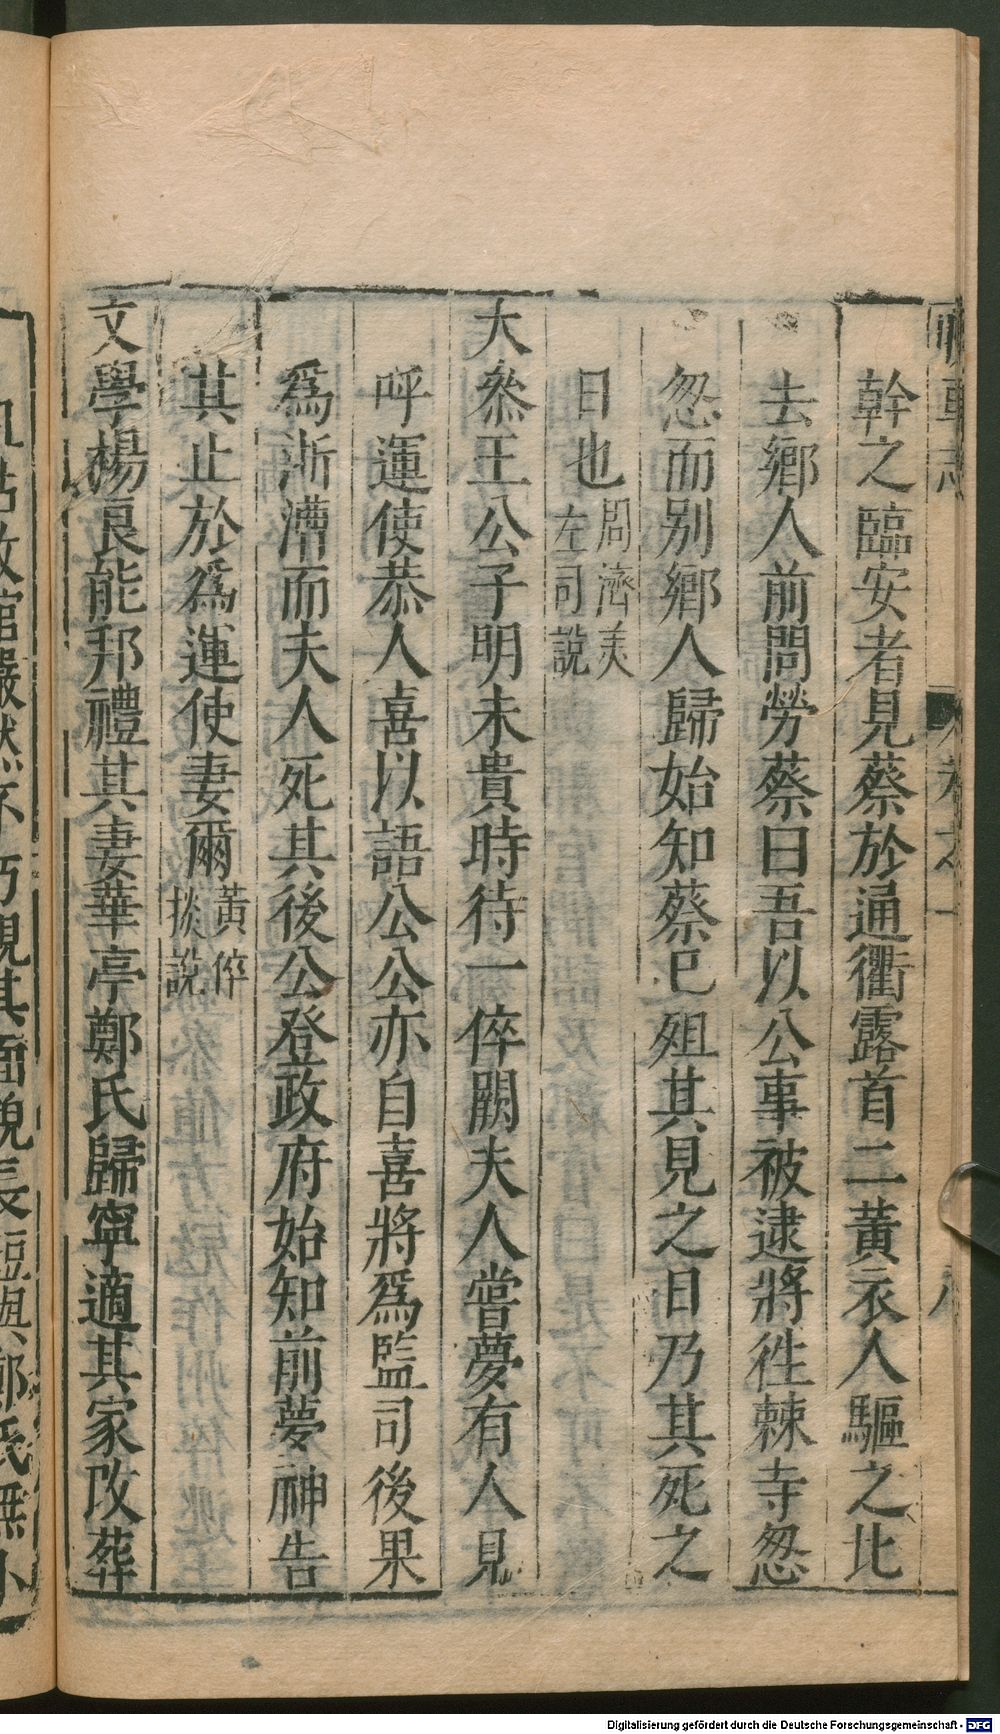 幹之臨安者見蔡於通衢露首二黃衣人驅之北
去鄉人前問勞蔡曰吾以公事被逮將徃棘寺怱
怱而别鄉人歸始知蔡已殂其見之日乃其死之
日也周濟美左司說
大叅王公子明未貴時待一倅闕夫人嘗夢有人見
呼運使恭人喜以語公公亦自喜將爲監司後果
爲浙漕而夫人死其後公登政府始知前夢神告
其止於爲運使妻爾黃倅掞說
文學楊良能邦禮其妻華亭鄭氏歸寧適其家改葬
Digitalisierung gefördert durch die Deutsche Forschungsgemeinschaft - DFG